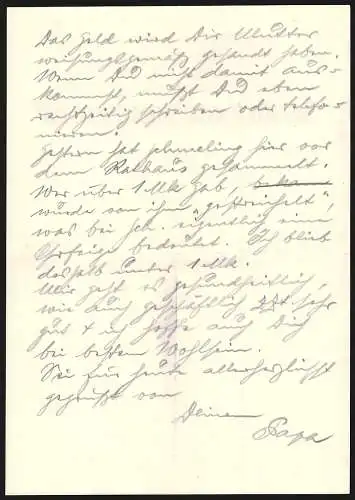 Das Geld wird Dir Mutter
weisungsgemäß gesandt haben.
Wenn Du nicht damit aus=
kommst, mußt Du eben
rechtzeitig schreiben oder telefo=
nieren!
Gestern hat Schmeling hier vor
dem Rathaus gesammelt.
Wer über 1 Mk gab, bekam
wurde von ihm „gestreichelt“,
was bei Sch. eigentlich eine
Ohrfeige bedeutet. Ich blieb
deshalb unter 1 Mk.
Mir geht es gesundheitlich,
wie auch geschäftlich sehr
gut + ich hoffe auch Dich
bei bestem Wohlsein.
Sei für heute allerherzlichst
gegrüßt von
Deinem
Papa